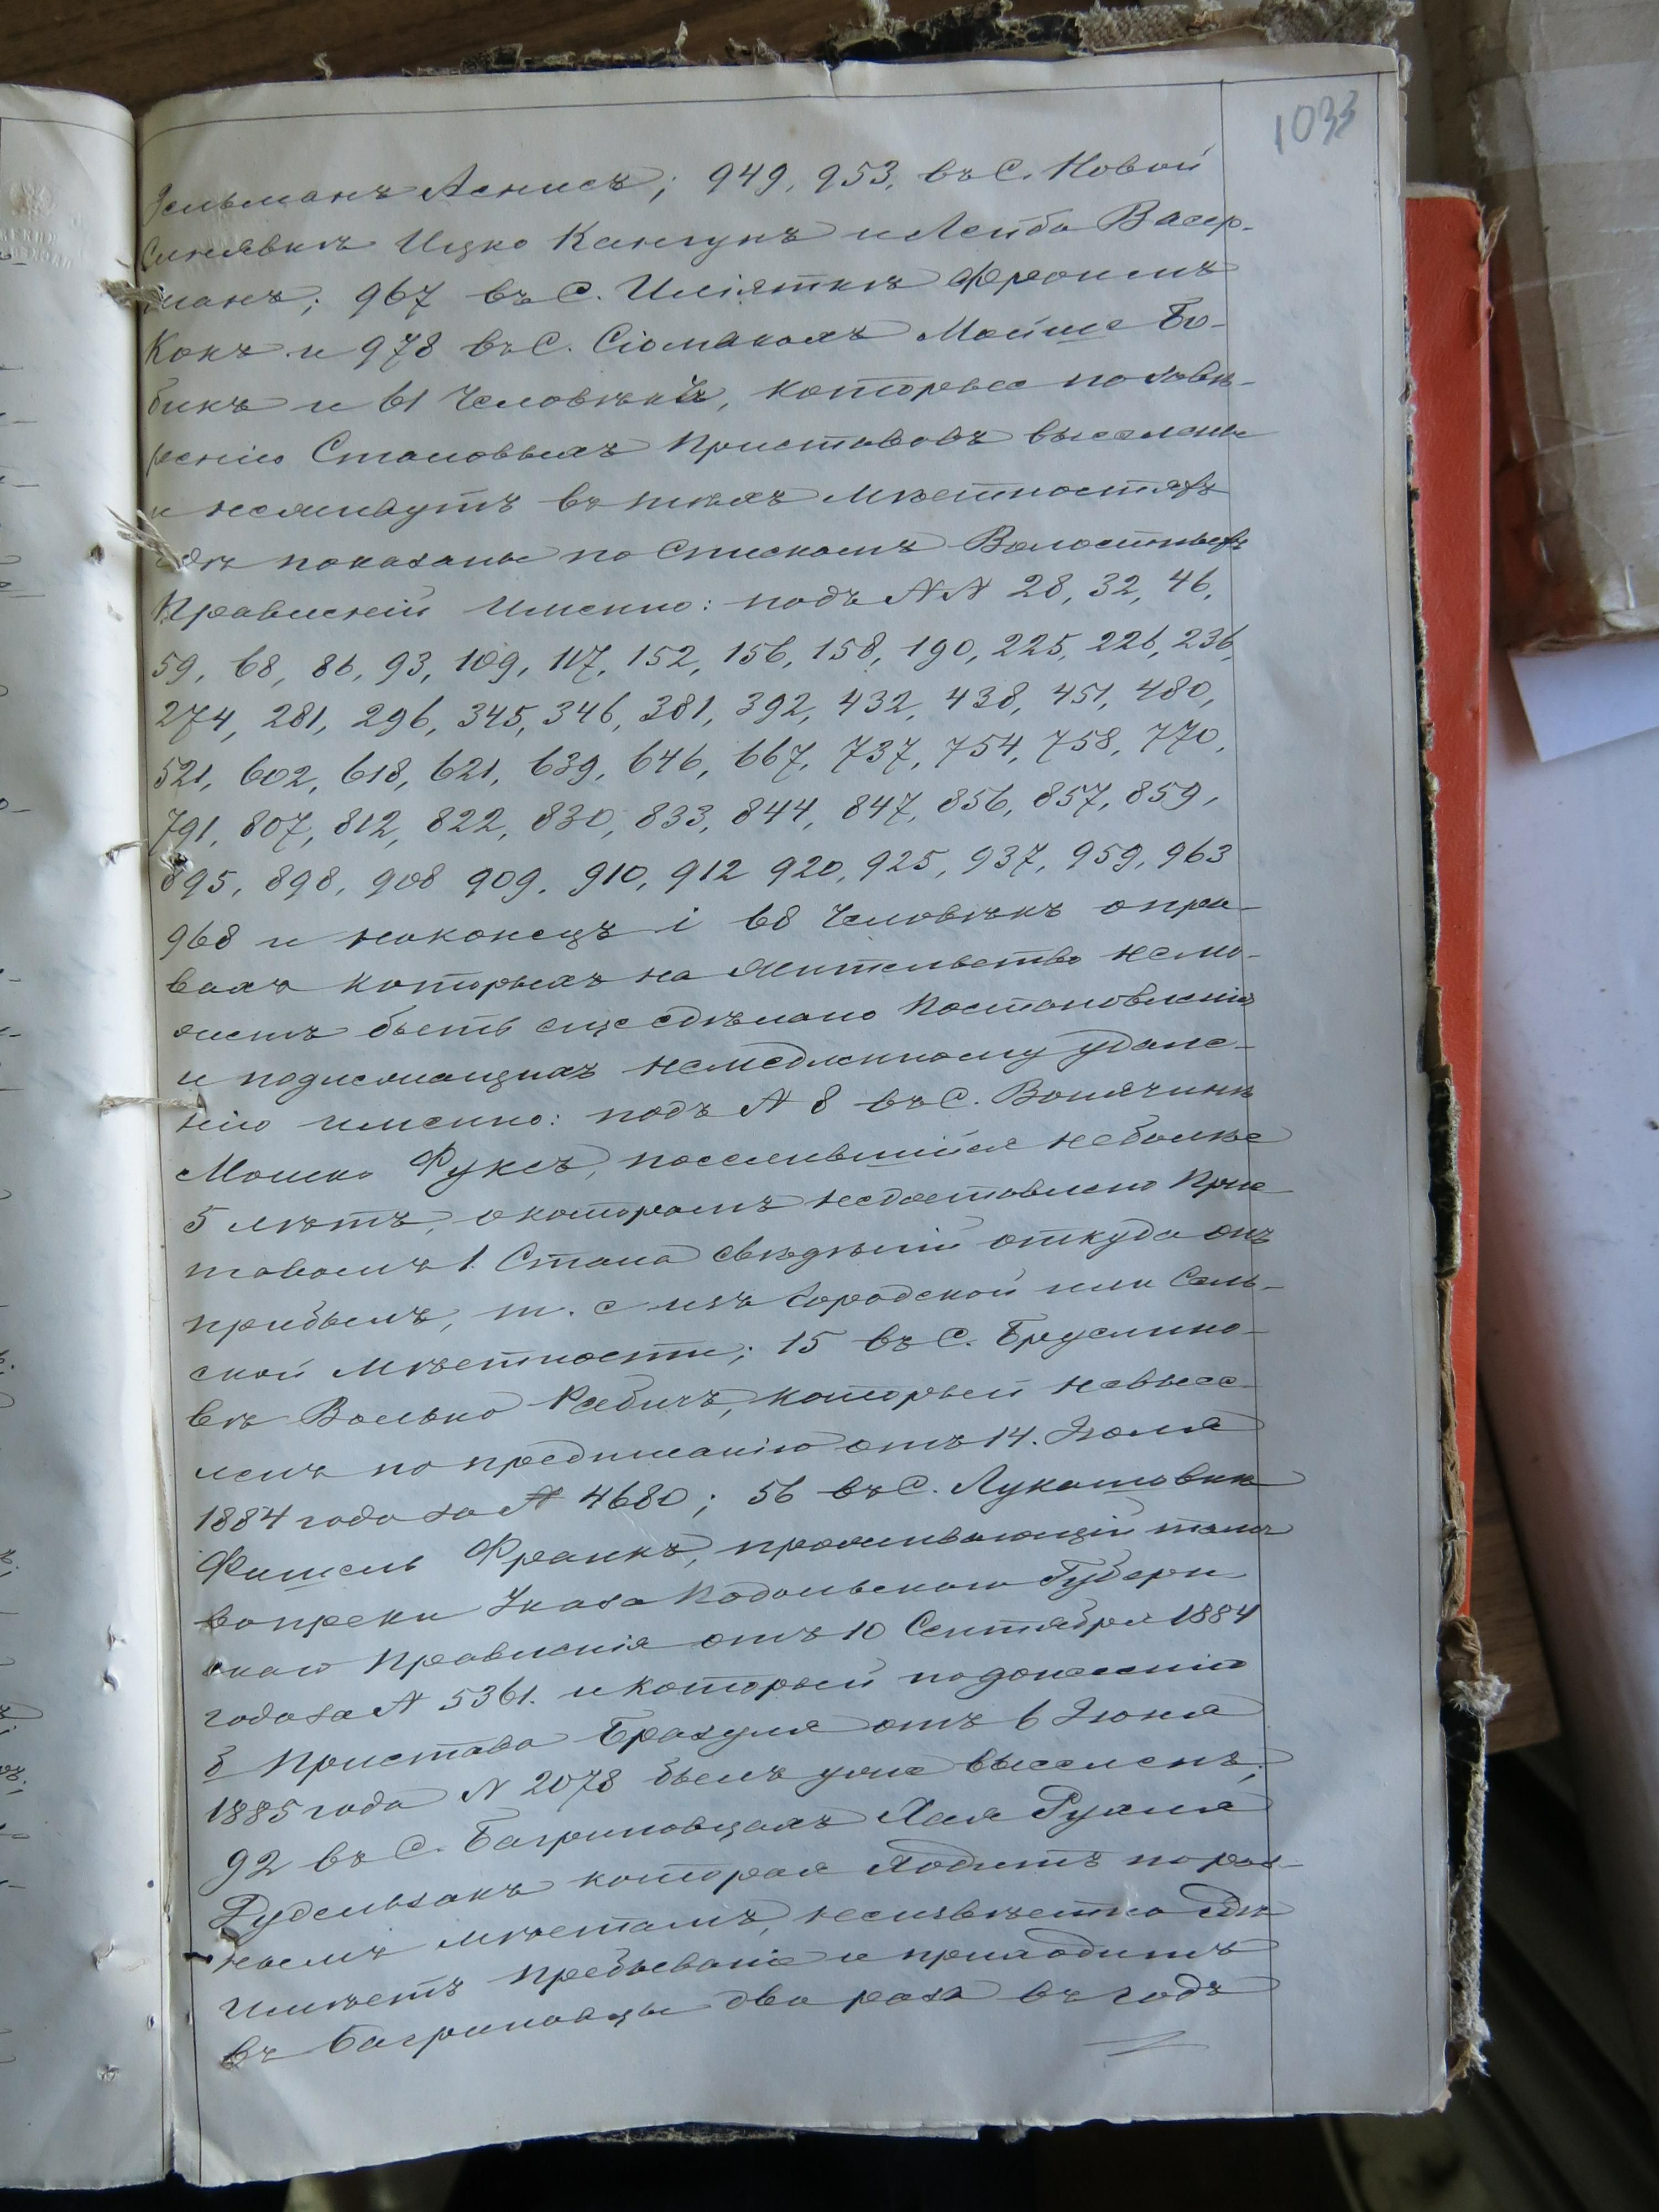 1033
Зельманъ Аснисъ; 949, 953, въ С. Новой
Синявкѣ Ицко Канчукъ и Лейба Васер-
манъ; 967 въ С. Иліяткѣ Фроимъ
Кокъ и 978 въ С. Сіомакахъ Мойше Бо-
бикъ и 61 Человѣкъ, которые по завѣ-
ренію Становыхъ Приставовъ выселены
и неживутъ въ тѣхъ мѣстностяхъ
гдѣ показаны по Спискамъ Волостныхъ
Правленій именно: подъ NN 28, 32, 46,
59, 68, 86, 93, 109, 117, 152, 156, 158, 190, 225, 226, 236,
274, 281, 296, 345, 346, 381, 392, 432, 438, 451, 480,
521, 602, 618, 621, 639, 646, 667, 737, 754, 758, 770,
791, 807, 812, 822, 830, 833, 844, 847, 856, 857, 859,
895, 898, 908 909, 910, 912 920, 925, 937, 959, 963
968 и наконецъ і 68 Человѣкъ о пра-
вахъ которыхъ на жительство немо-
жетъ быть еще сдѣлано Постановленія
и подлежащихъ немедленному удале-
нію именно: подъ N 8 въ С. Вонячинѣ
Мошко Фуксъ, поселившійся неболѣе
5 лѣтъ, о которомъ недоставлено При-
ставомъ 1. Стана свѣдѣній откуда онъ
прибылъ, т. е изъ Городской или Сель-
ской мѣстности; 15 въ С. Бруслино-
вѣ Волько Рабичъ, который невысе-
ленъ по предписанію отъ 14. Іюля
1884 года за N 4680; 56 въ С. Лукашовкѣ
Фишель Франкъ, проживающій тамъ
вопреки Указа Подольскаго Губерн
скаго Правленія отъ 10 Сентября 1884
года за N 5361. и который по донесенію
б Пристава Бразуля отъ 6 Іюня
1885 года N 2078 былъ уже выселенъ;
92 въ С. Багриновцахъ Хая Рухля
Рудельзакъ которая ходитъ по раз-
нымъ мѣстамъ, неизвѣстно гдѣ
имѣетъ пребываніе и приходитъ
въ Багриновцы два раза въ годъ